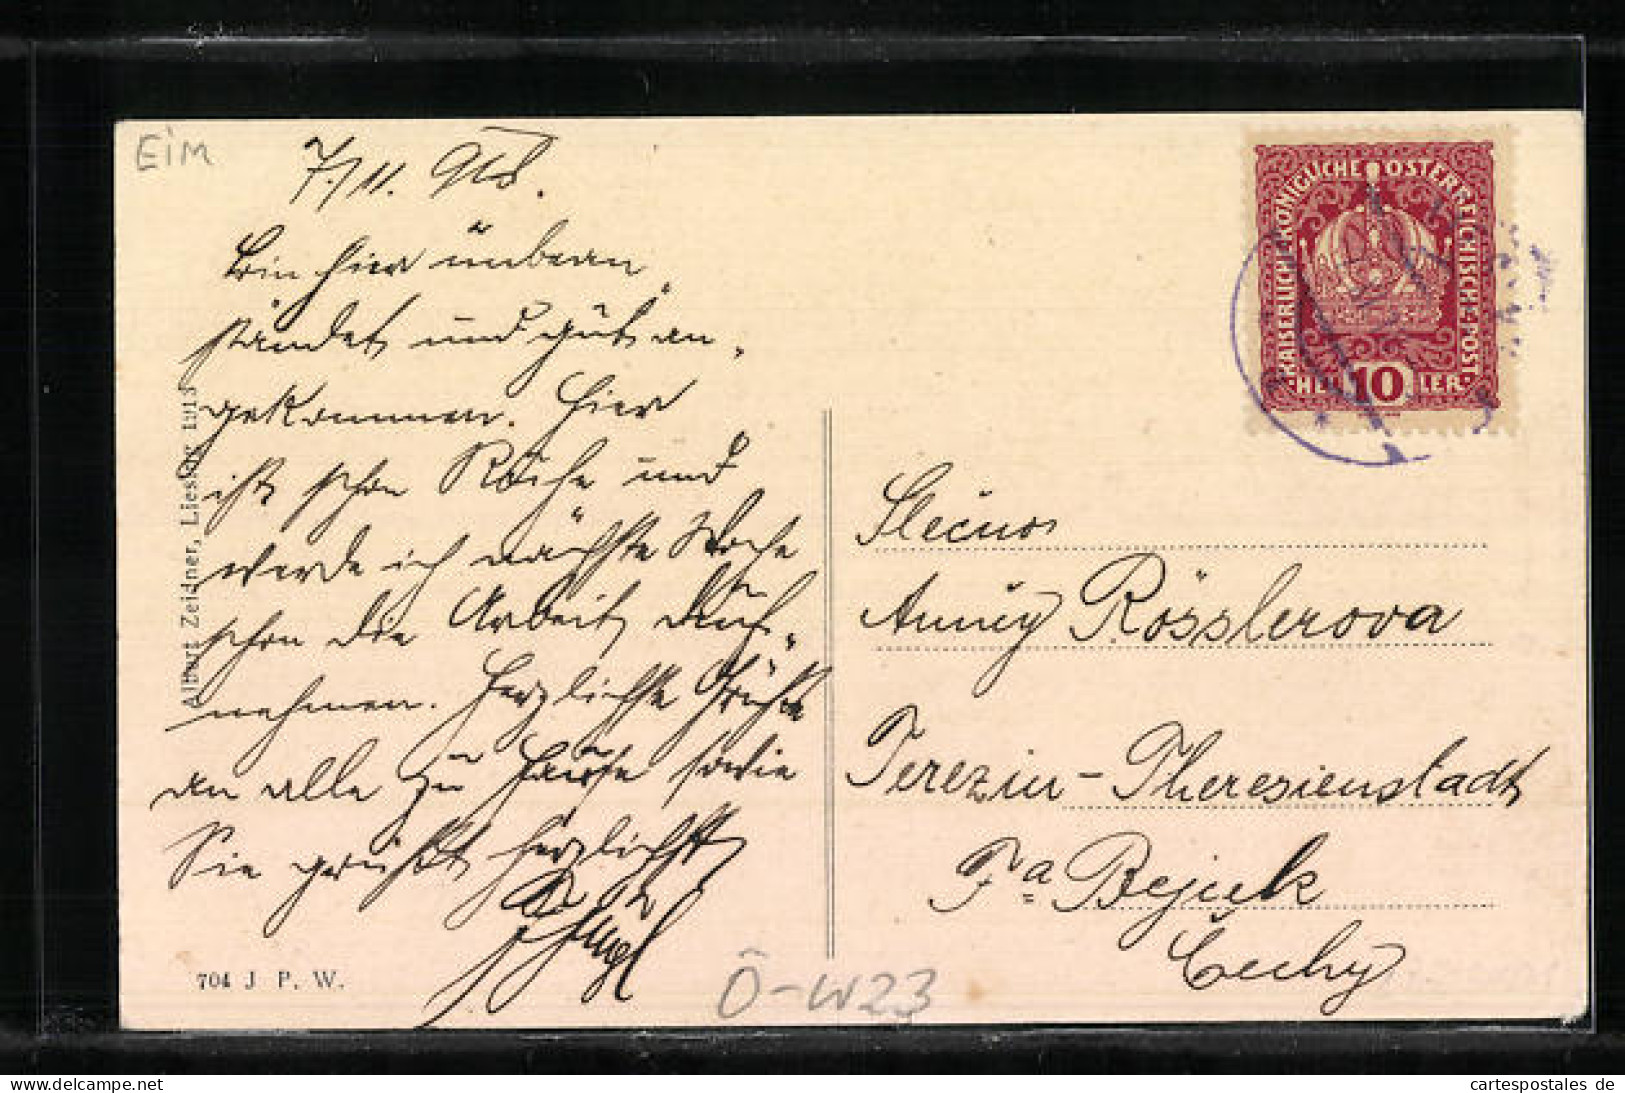 EiM
7./11. 918.
Bin hier unbean
ständet und gut an-
gekommen. Hier
ist schon Ruhe und
werde ich nächste Woche
schon die Arbeit auf-
nehmen. Herzlichste Grüße
an alle zu Hause sowie
Sie grüßt herzlichst
Albert Zeidner, Liesing 1913
704 J P. W.
Ö-W23
KAISERLICHE KÖNIGLICHE ÖSTERREICHISCHE POST
HELLER 10
Slečno
Anny Rösslerova
Terezin-Theresienstadt
Fa Bejček
Čechy
cartespostales.de